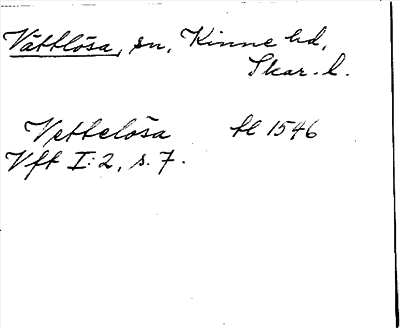 Vättlösa, sn, Kinne hd,
Skar. l.
Vettelösa fl 1546
Vft I:2, s. 7.